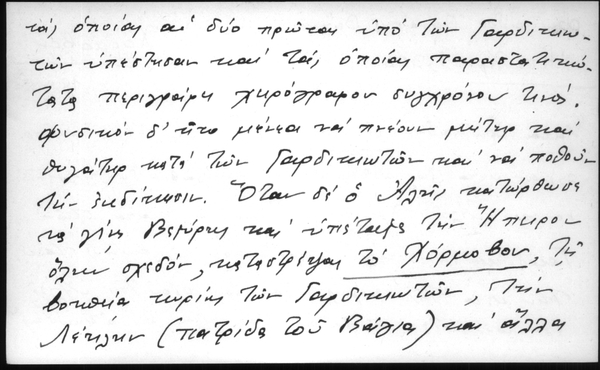 τάς ὁποίας αἱ δύο πρῶται ὑπό τῶν Γαρδικιω-
τῶν ὑπέστησαν καί τάς ὁποίας παραστατικώ-
τατα περιγράφει χειρόγραφον συγχρόνου τινός.
φυσικόν δ' ἦτο μένεα νά πνέουν μήτηρ καί
θυγάτηρ κατά τῶν Γαρδικιωτῶν καί νά ποθοῦν
τήν ἐκδίκησιν. Ὅταν δέ ὁ Ἀλής κατώρθωσε
νά γίνῃ Βεζύρης καί ὑπέταξε τήν Ἤπειρον
ὅλην σχεδόν, καταστρέψας τό Χόρμοβον, τῇ
βοηθείᾳ κυρίως τῶν Γαρδικιωτῶν, τήν
Λέκλην (πατρίδα τοῦ Βάγια) καί ἄλλα